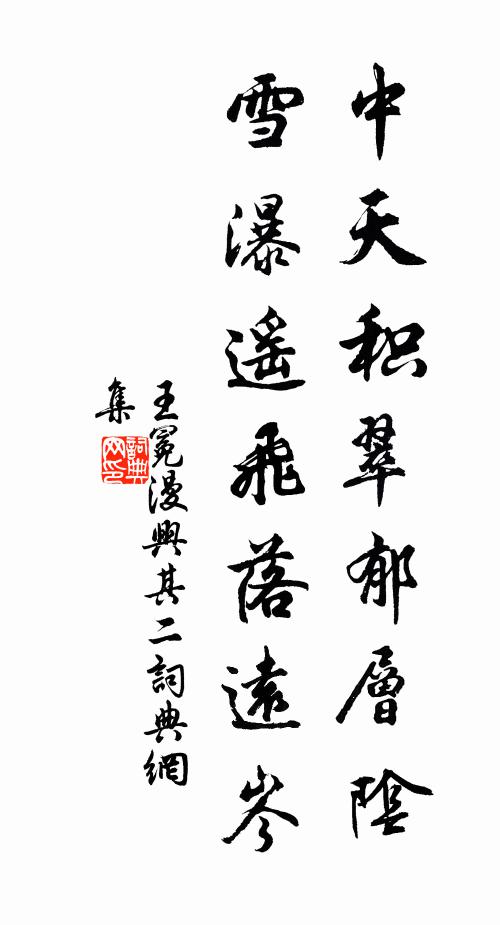 中天积翠郁層陰
雪瀑遥飛落遠岑
王冕漫興其二詞典網
集
詞典
网印